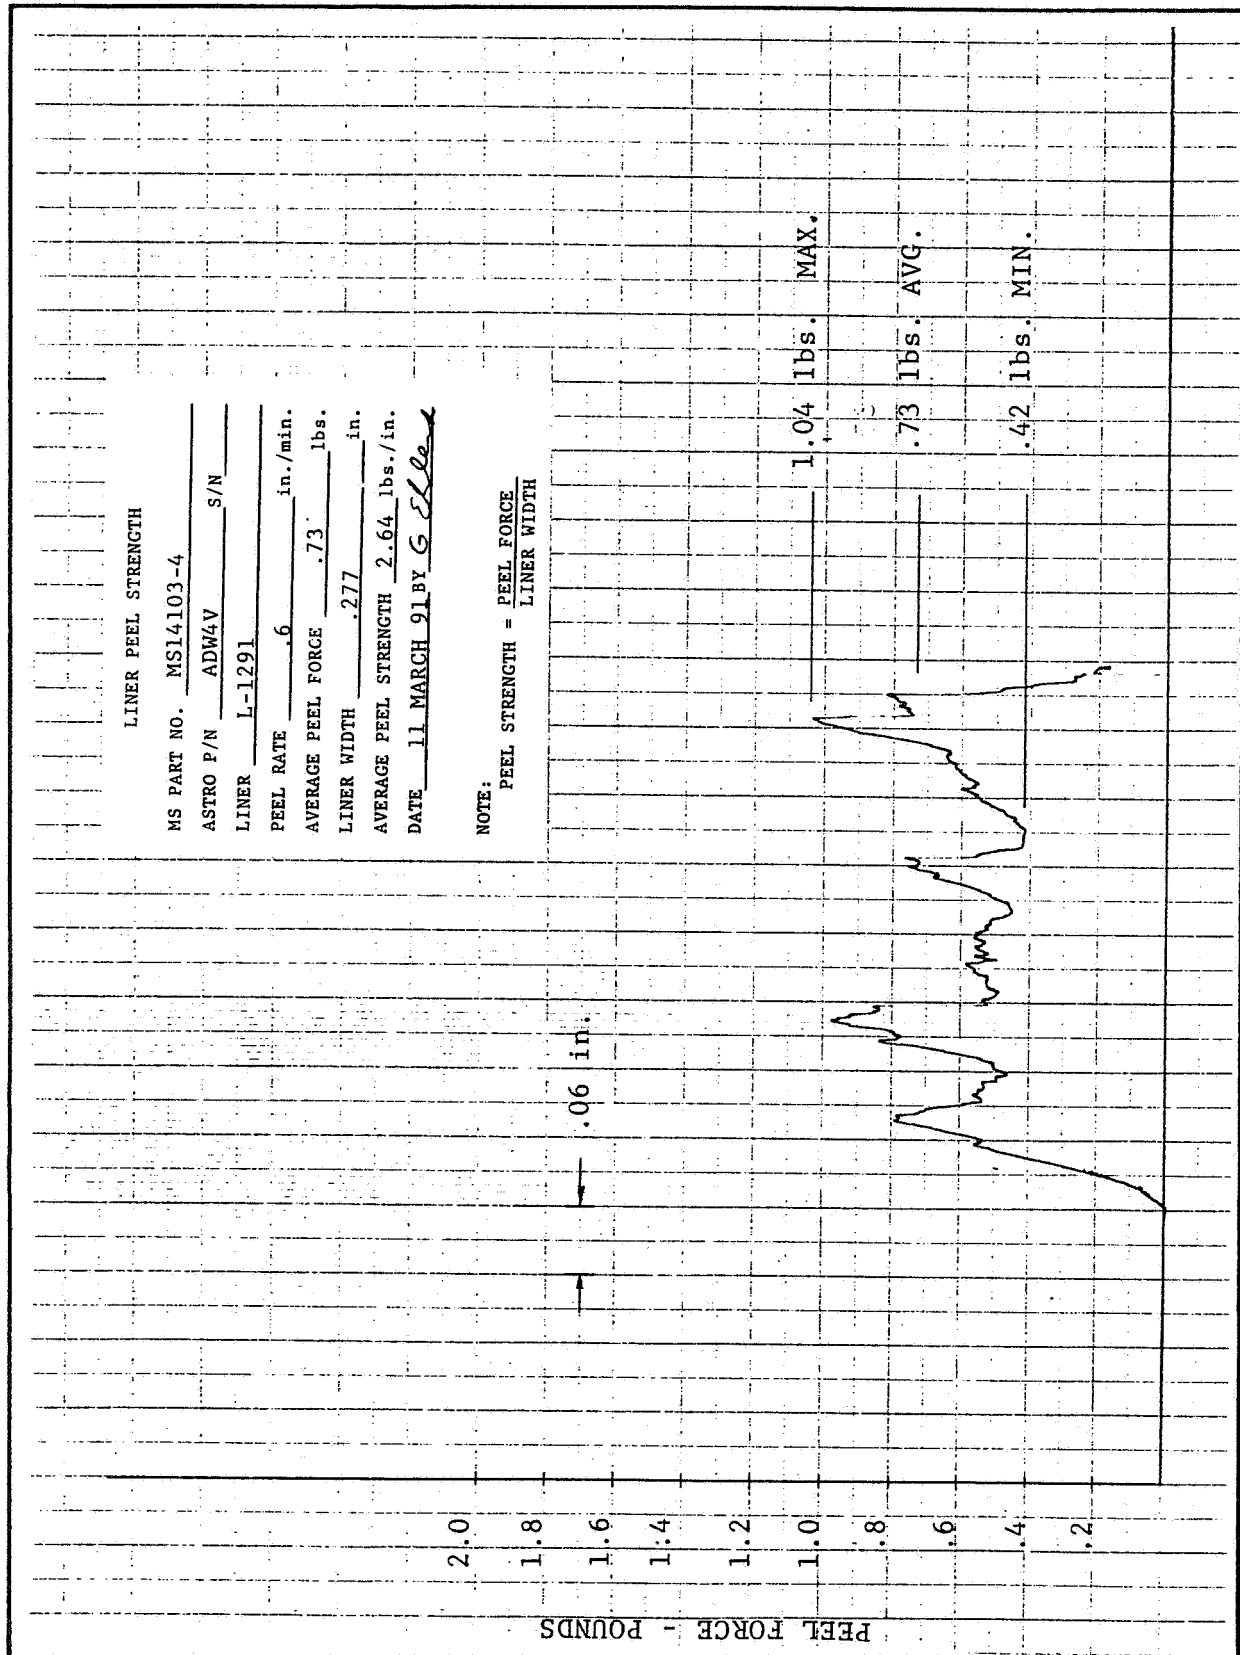 LINER PEEL STRENGTH
MS PART NO. MS14103-4
ASTRO P/N ADW4V S/N
LINER L-1291
PEEL RATE .6 in./min.
AVERAGE PEEL FORCE .73 lbs.
LINER WIDTH .277 in.
AVERAGE PEEL STRENGTH 2.64 lbs./in.
DATE 11 MARCH 91 BY G
NOTE:
PEEL STRENGTH = PEEL FORCE
LINER WIDTH
.06 in.
1.04 lbs. MAX.
.73 lbs. AVG.
.42 lbs. MIN.
2.0
1.8
1.6
1.4
1.2
1.0
.8
.6
.4
.2
PEEL FORCE - POUNDS